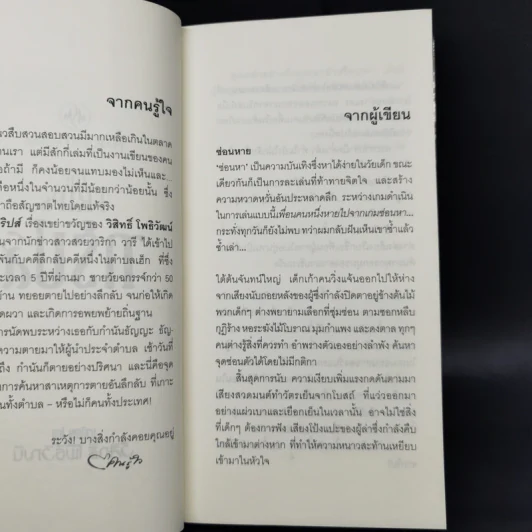 จากคนรู้ใจ
วสืบสวนสอบสวนมีมากเหลือเกินในตลาด
นเรา แต่มีสักกี่เล่มที่เป็นงานเขียนของคน
ถ้ามี ก็คงน้อยจนแทบมองไม่เห็นและ...
คือหนึ่งในจำนวนที่มีน้อยกว่าน้อยนั้น ซึ่ง
าถือสัญชาติไทยโดยแท้จริง
ริปส์ เรื่องเขย่าขวัญของ วิสิทธิ์ โพธิวัฒน์
นจากนักข่าวสาวสวยวาริกา วารี ได้เข้าไป
พันกับคดีลึกลับคดีหนึ่งในตำบลเฮิก ที่ซึ่ง
ะเวลา 5 ปีที่ผ่านมา ชายวัยฉกรรจ์กว่า 50
บ้าน ทยอยตายไปอย่างลึกลับ จนก่อให้เกิด
ดผวา และเกิดการอพยพย้ายถิ่นฐาน
ารนัดพบระหว่างเธอกับกำนันธัญญะ ธัญ-
ความตายมาให้ผู้นำประจำตำบล เช้าวันที่
ถึง กำนันก็ตายอย่างปริศนา และนี่คือจุด
งการค้นหาสาเหตุการตายอันลึกลับ ที่เกาะ
นทั้งตำบล – หรือไม่ก็คนทั้งประเทศ!
ระวัง! บางสิ่งกำลังคอยคุณอยู่
จากผู้เขียน
ซ่อนหาย
'ซ่อนหา' เป็นความบันเทิงซึ่งหาได้ง่ายในวัยเด็ก ขณะ
เดียวกันก็เป็นการละเล่นที่ท้าทายจิตใจ และสร้าง
ความหวาดหวั่นอันประหลาดลึก ระหว่างเกมดำเนิน
ในการเล่นแบบนี้เพื่อนคนหนึ่งหายไปจากเกมซ่อนหา...
กระทั่งทุกวันก็ยังไม่พบ ทว่าผมกลับฝันเห็นเขาซ้ำแล้ว
ซ้ำเล่า...
ใต้ต้นจันทน์ใหญ่ เด็กเก้าคนวิ่งแจ้นออกไปให้ห่าง
จากเสียงนับถอยหลังของผู้ซึ่งกำลังปิดตาอยู่ข้างต้นไม้
พวกเด็กๆ ต่างพยายามเลือกที่ซุ่มซ่อน ตามซอกหลืบ
กุฏิร้าง หอระฆังไม้โบราณ มุมกำแพง และดงตาล ทุกๆ
คนต่างรู้สิ่งที่ควรทำ อำพรางตัวเองอย่างลำพัง ค้นหา
จุดซ่อนตัวได้โดยไม่มีกติกา
สิ้นสุดการนับ ความเงียบเพิ่มแรงกดดันตามมา
เสียงสวดมนต์ทำวัตรเย็นจากโบสถ์ ที่แว่วออกมา
อย่างแผ่วเบาและเยือกเย็นในเวลานั้น อาจไม่ใช่สิ่ง
ที่เด็กๆ ต้องการฟัง เสียงโป้งแปะของผู้ล่าซึ่งกำลังคืบ
ใกล้เข้ามาต่างหาก ที่ทำให้ความหนาวสะท้านเหยียบ
เข้ามาในหัวใจ